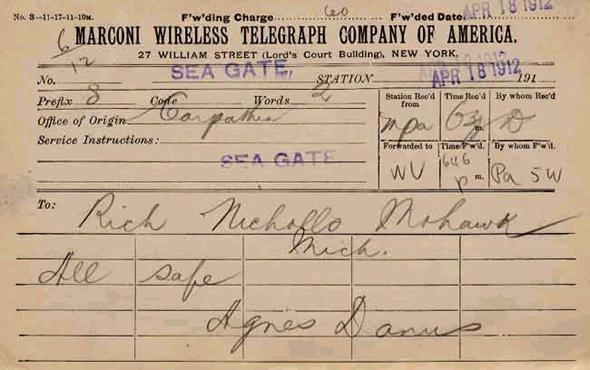 No. 3—11-17-11-10M. F'w'ding Charge 60 F'w'ded Date APR 18 1912
6 MARCONI WIRELESS TELEGRAPH COMPANY OF AMERICA,
12 27 WILLIAM STREET (Lord's Court Building), NEW YORK,
No. SEA GATE, STATION APR 18 1912 191
Prefix S Code Words 2
Station Rec'd from Time Rec'd By whom Rec'd
Office of Origin Carpathia
mpa m.
Service Instructions:
Forwarded to Time F'w'd. By whom F'w'd.
SEA GATE.
WU 646 p m. Pa SW
To: Rich Nicholls Mohawk
Mich.
All safe
Agnes Danus